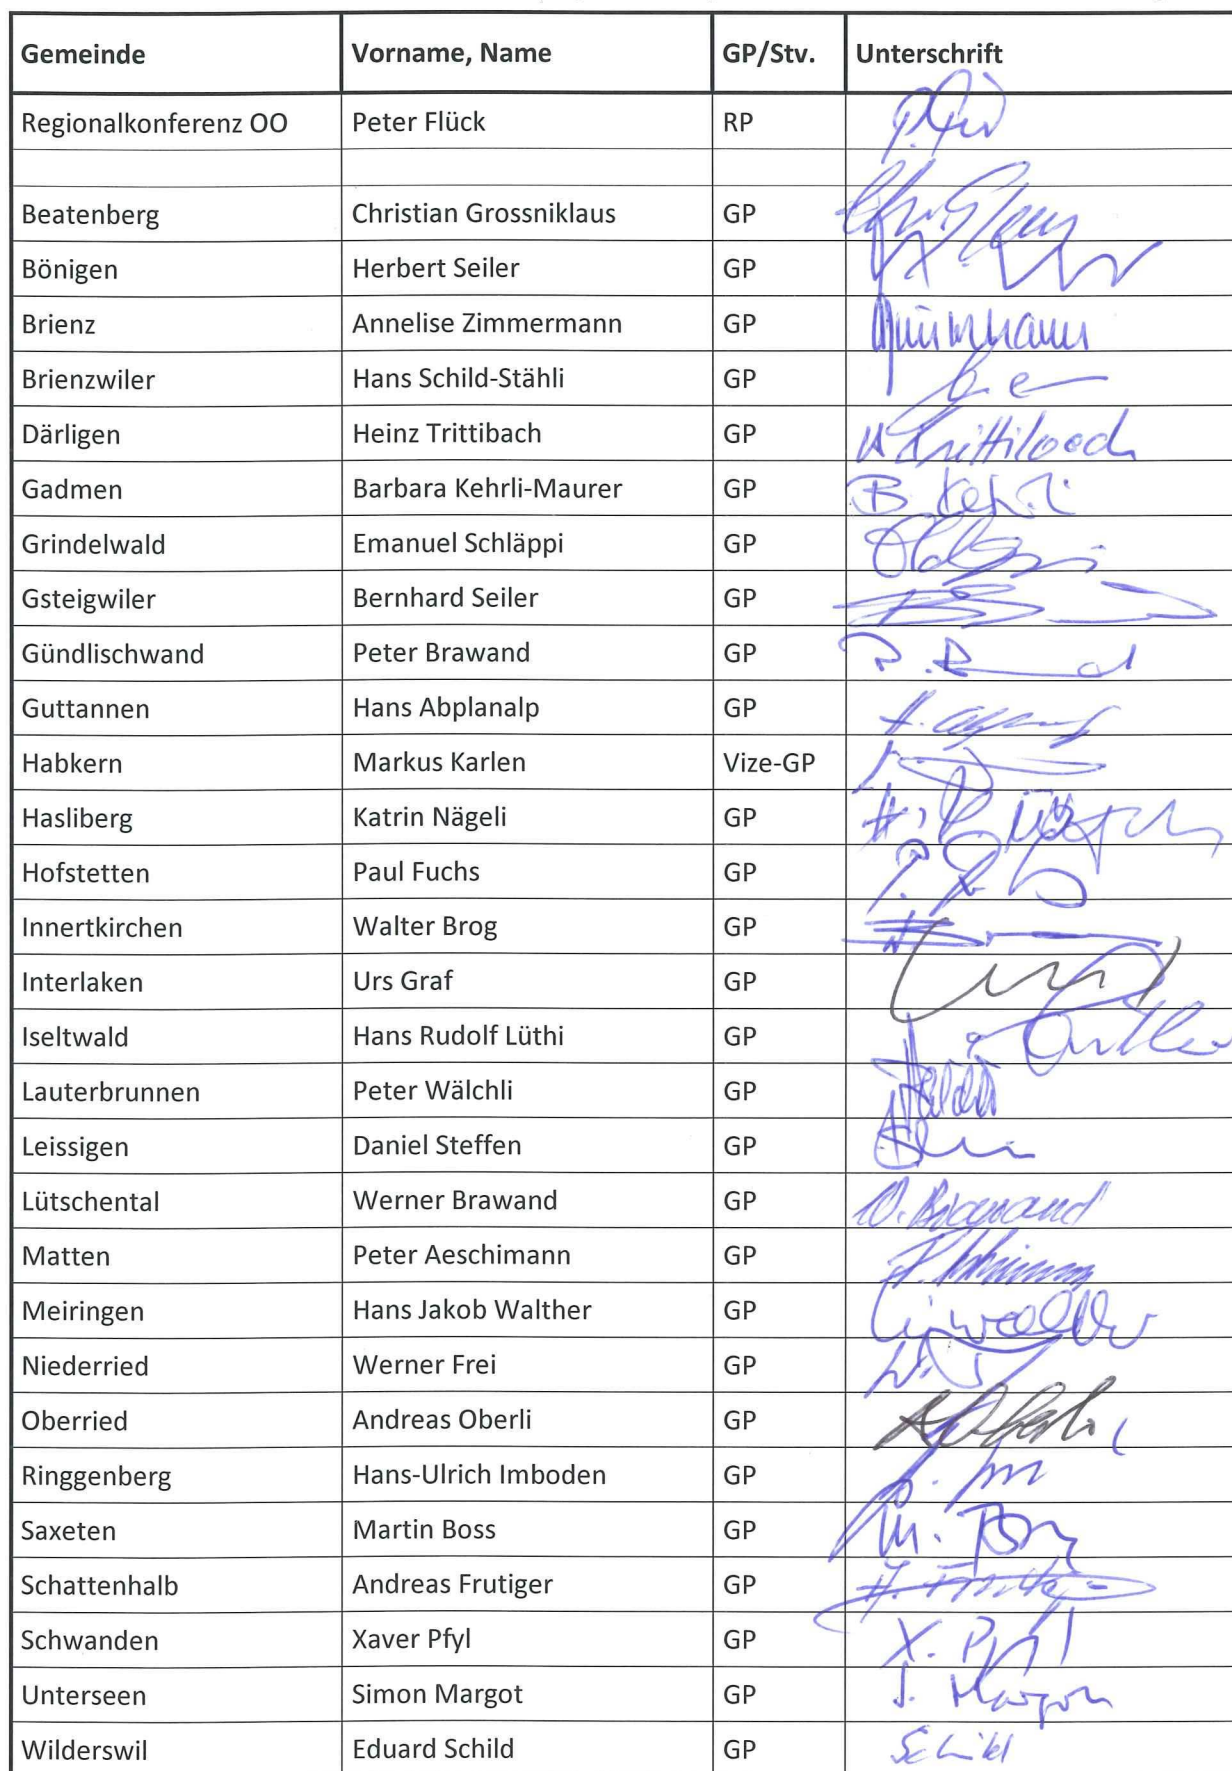 Gemeinde Vorname, Name GP/Stv. Unterschrift
Regionalkonferenz OO Peter Flück RP
Beatenberg Christian Grossniklaus GP
Bönigen Herbert Seiler GP
Brienz Annelise Zimmermann GP
Brienzwiler Hans Schild-Stähli GP
Därligen Heinz Trittibach GP H Trittibach
Gadmen Barbara Kehrli-Maurer GP B. Kehrli
Grindelwald Emanuel Schläppi GP
Gsteigwiler Bernhard Seiler GP
Gündlischwand Peter Brawand GP
Guttannen Hans Abplanalp GP
Habkern Markus Karlen Vize-GP
Hasliberg Katrin Nägeli GP
Hofstetten Paul Fuchs GP
Innertkirchen Walter Brog GP
Interlaken Urs Graf GP
Iseltwald Hans Rudolf Lüthi GP
Lauterbrunnen Peter Wälchli GP
Leissigen Daniel Steffen GP
Lütschental Werner Brawand GP W. Brawand
Matten Peter Aeschimann GP
Meiringen Hans Jakob Walther GP
Niederried Werner Frei GP
Oberried Andreas Oberli GP A Oberli
Ringgenberg Hans-Ulrich Imboden GP
Saxeten Martin Boss GP M. Boss
Schattenhalb Andreas Frutiger GP A. Frutiger
Schwanden Xaver Pfyl GP X. Pfyl
Unterseen Simon Margot GP S. Margot
Wilderswil Eduard Schild GP Schild